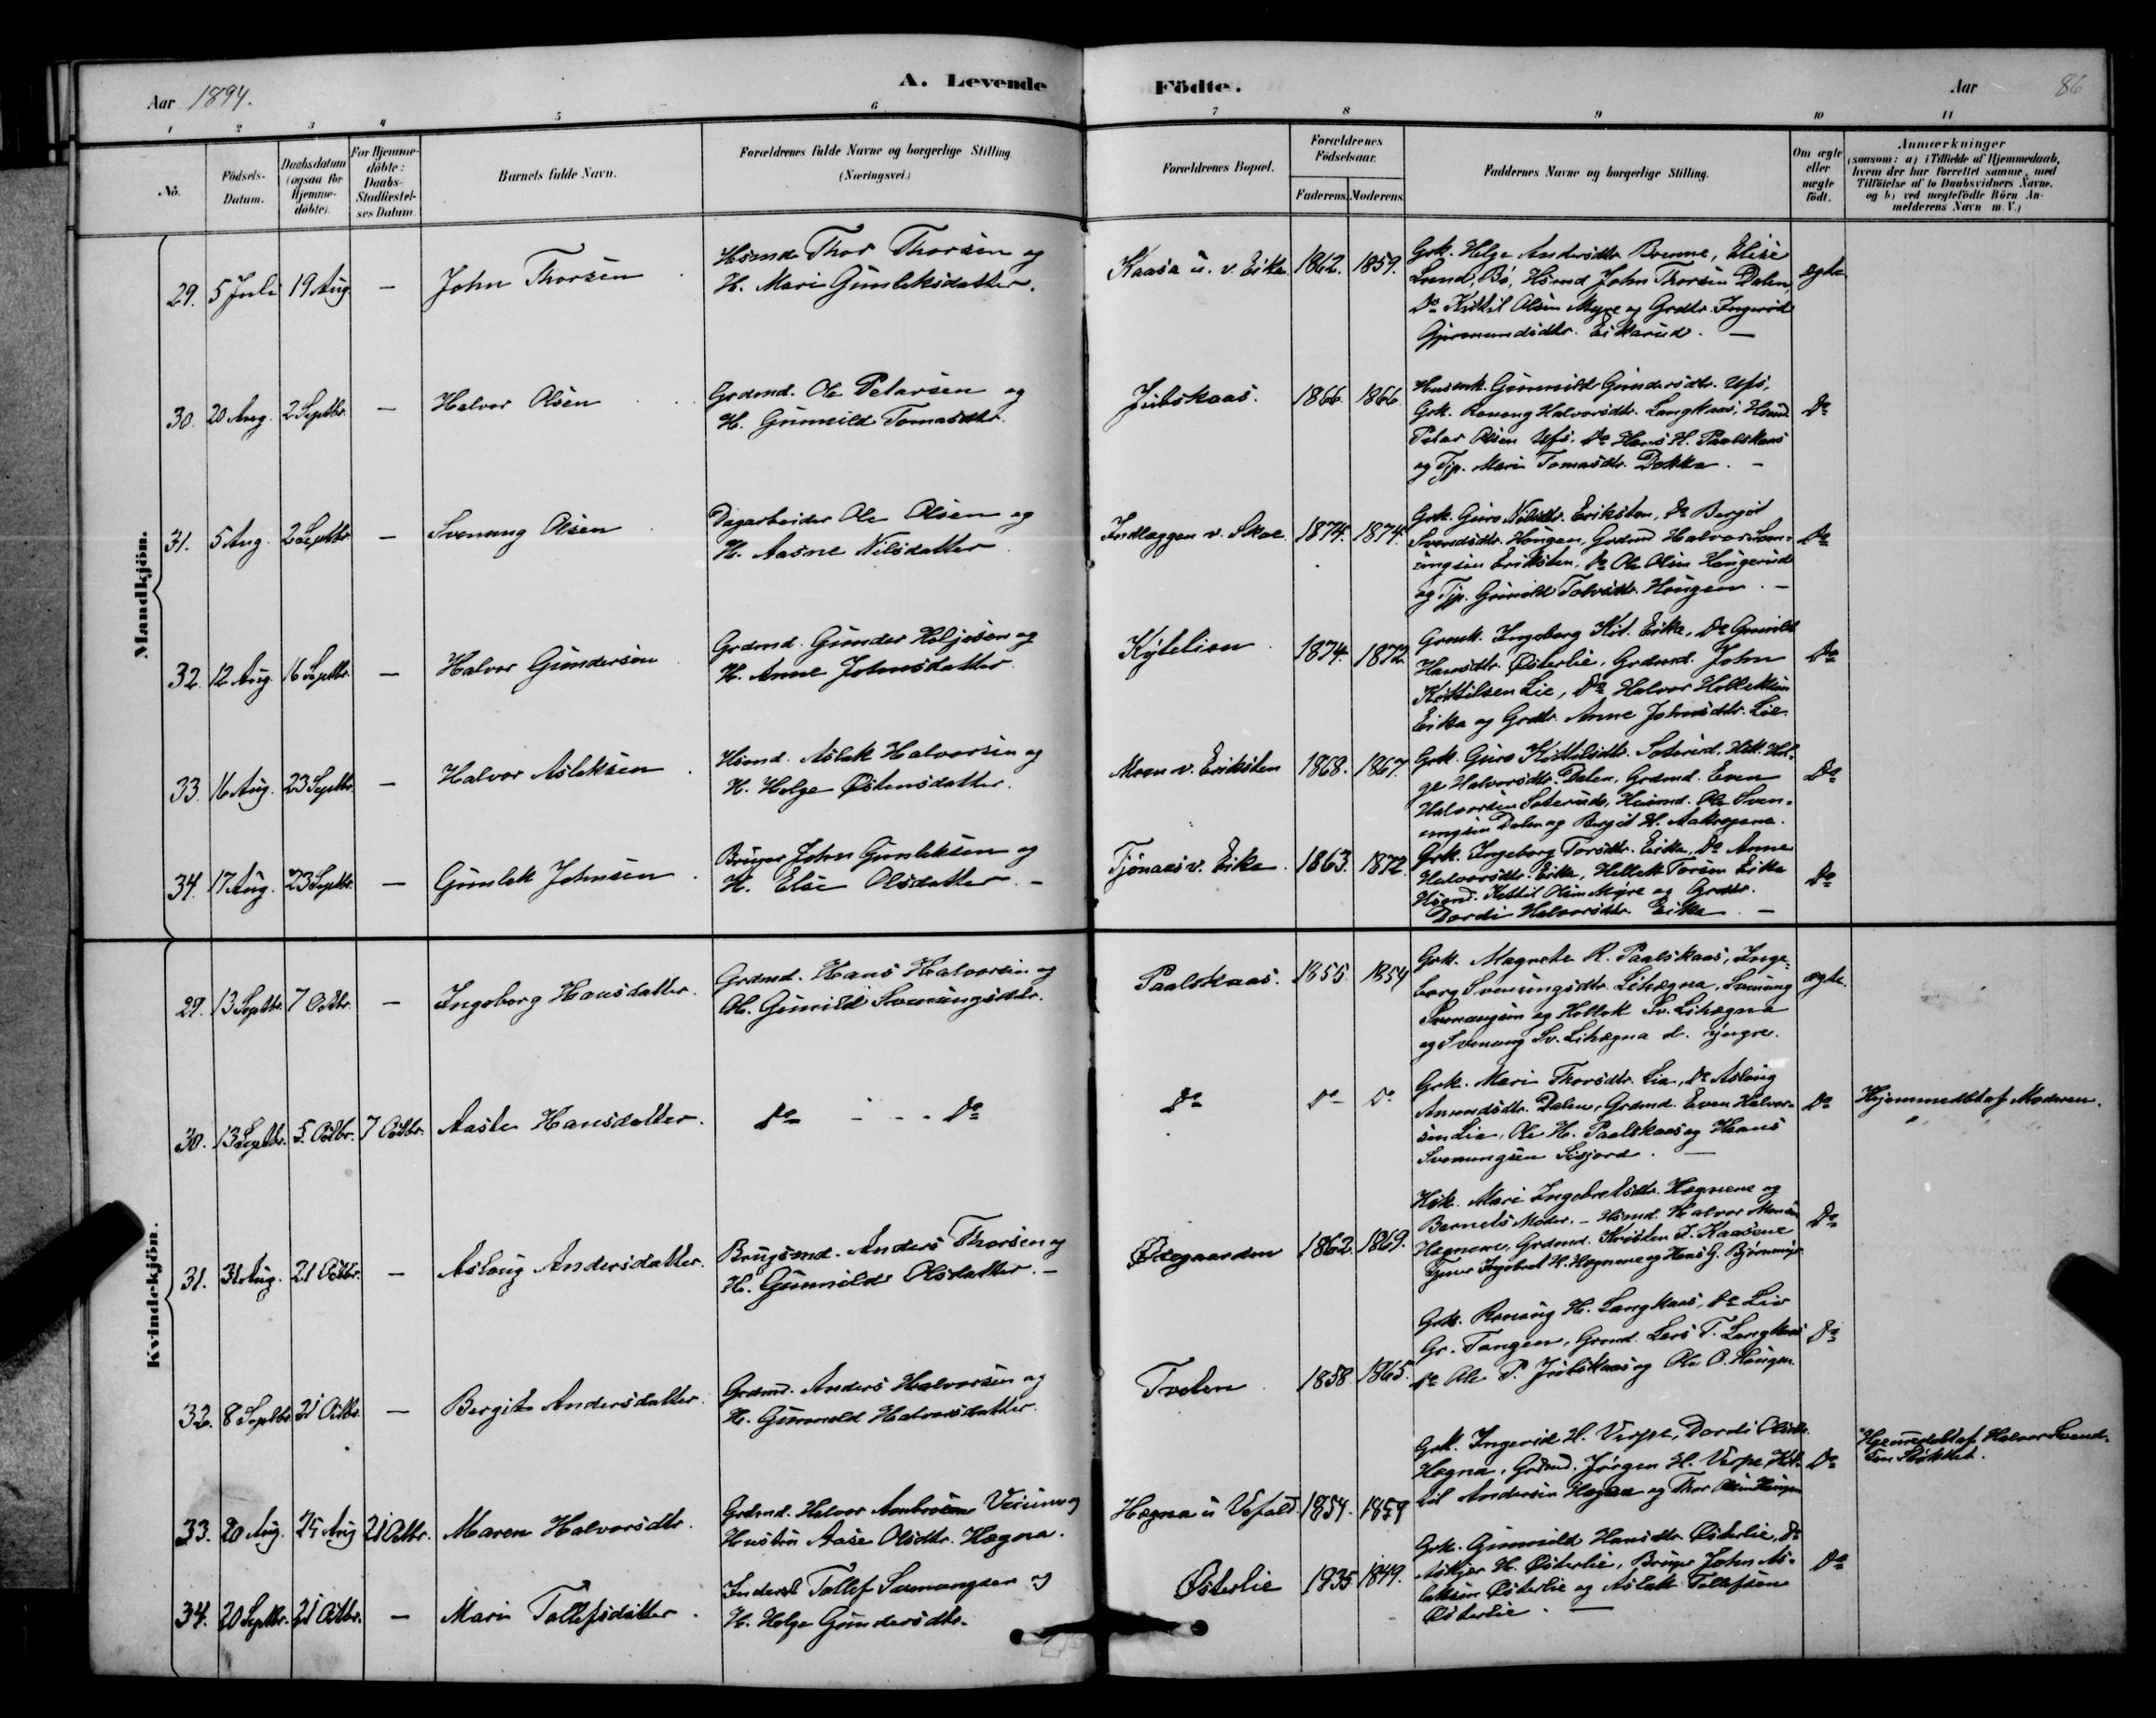 A. Levende Födte.
Aar 1894.
Aar 86
1 2 3 4 5 6 7 8 9 10 11
No.
Födsels-
Datum.
Daabsdatum
(ogsaa for
Hjemme-
döbte).
For Hjemme-
döbte:
Daabs-
Stadfæstel-
ses Datum.
Barnets fulde Navn.
Forældrenes fulde Navne og borgerlige Stilling.
(Næringsvei.)
Forældrenes Bopæl.
Forældrenes
Födselsaar.
Faderens. Moderens.
Faddernes Navne og borgerlige Stilling.
Om ægte
eller
uægte
födt.
Anmærkninger
(saasom: a) i Tilfælde af Hjemmedaab,
hvem der har forrettet samme, med
Tilföielse af to Daabsvidners Navne.
og b) ved uægtefödte Börn An-
melderens Navn m. V.)
Mandkjön.
29. 5 Juli 19 Aug — John Thorsen
Hsmd. Thor Thorsen og
H. Mari Gunleksdatter.
Kaasa u. v. Eika 1862. 1859.
Grk. Helge Andersdtr. Brenne, Elise
Lund, Bö, Hsmd John Thorsen Dalen,
Do Kittil Olsen Myre og Grdtr. Ingerid
Gjermundsdtr. Eikarud. —
ægte
30. 20 Aug. 2 Septbr. — Halvor Olsen
Grdmd. Ole Petersen og
H. Gunnild Tomasdtr.
Jutskaas. 1866. 1866.
Gunnild Gundersdtr. Ufs,
Grk. Ronaug Halvorsdtr. Langkaas, Hsmd
Peter Olsen Ufs, Do Hans H. Paalskaas
og Tjp. Mari Tomasdtr. Dokka. —
Do
31. 5 Aug. 2 Septbr — Svenung Olsen
Dagarbeider Ole Olsen og
H. Aasne Nilsdatter
Indlæggen v. Skoe. 1874. 1874.
Grk. Guro Nilsdtr. Eriksten, Do Bergit
Svendsdtr. Haugen, Grdmd Halvor Sven-
ungsen Eriksten, Do Ole Olsen Haugerud
og Tjp. Gunild Tovsdtr. Haugen. —
Do
32. 12 Aug. 16 Septbr. — Halvor Gundersen
Grdmd. Gunder Heljesen og
H. Anne Johnsdatter.
Kytelien 1874. 1872
Grmk. Ingeborg Kit. Eika, Do Gunild
Hansdtr. Österlie, Grdmd. John
Kittilsen Lie, Do Halvor Helleksen
Eika og Grdtr. Anne Johnsdtr. Lie.
Do
33. 16 Aug. 23 Septbr. — Halvor Asleksen
Hsmd. Aslak Halvorsen og
H. Helge Østensdatter.
Moen v. Eriksten 1868. 1867.
Grk. Guro Kittilsdtr. Soterud. Hsk. Hel-
ge Halvorsdtr. Dalen, Grdmd. Even
Halvorsen Soterud, Husmd. Ole Sven-
ungsen Dalen og Bergit H. .
Do
34. 17 Aug. 23 Septbr. — Gunlek Johnsen
Bruger John Gunleksen og
H. Else Olsdatter. —
Tjønaas v. Eika. 1863. 1872.
Grk. Ingeborg Torsdtr. Eika, Do Anne
Halvorsdtr. Eika, Hellek Torsen Eika
Hsmd. Kittil Olsen Myre og Grdtr.
Dordi Halvorsdtr. Eika. —
Do
Kvindekjön.
29. 13 Septbr. 7 Octbr. — Ingeborg Hansdatter.
Grdmd. Hans Halvorsen og
H. Gunild Svenungsdtr.
Paalskaas. 1855. 1854
Grk. Magnete R. Paalskaas, Inge-
borg Svenungsdtr. Lihægna, Svenung
Svenungsen og Hellek Sv. Lihægna
og Svenung Sv. Lihægna d. yngre.
ægte.
30. 13 Septbr. 5. Octbr. 7 Octbr. Aaste Hansdatter.
Do — - - Do
Do Do Do
Grk. Mari Thorsdtr. Lia, Do Aslaug
Amundsdtr. Dalen, Grdmd. Even Halvor-
sen Lia, Ole H. Paalskaas og Hans
Svenungsen Lisjord. —
Do
Hjemmedöbt af Moderen.
31. 31 Aug. 21 Octbr. — Aslaug Andersdatter.
Brugsmd. Anders Thorsen og
H. Gunnild Olsdatter. —
Ødegaarden 1862. 1869.
Hsk. Mari Ingebretsdtr. Hægnene og
Barnets Moder. - Hsmd. Halvor
Hægnene, Grdmd. Kristen J. Kaasene
Ingebret H. Hægnene og Hans G.
Do
32. 8 Septbr 21 Octbr. — Bergit Andersdatter.
Grdmd. Anders Halvorsen og
H. Gunnild Halvorsdatter.
Tveten 1858. 1865.
Grk. Ronaug H. Langkaas, Do Liv
Gr. Tangen, Grmd. Lars T. Langkaas
Do Ole P. Jutskaas og Ole O. Haugen.
Do
33. 20 Aug. 25 Aug 21 Octbr. Maren Halvorsdtr.
Grdmd. Halvor og
Hustru Aase Olsdtr. Hægna.
Hægna u Vefald. 1854. 1859
Grk. Ingerid H. Verpe, Dordi Olsdtr.
Hægna, Grdmd. Jörgen H. Verpe, Kit-
til Andersen Hægna og Thor Olsen Haugen
Do
Hjemmedöbt af Halvor Svend-
sen .
34. 20 Septbr. 21 Octbr. — Mari Tollefsdatter.
Inderst Tollef Svenungsen og
H. Helge Gundersdtr.
Österlie 1835 1849.
Grk. Gunnild Hansdtr. Österlie, Do
Askjer H. Österlie, Bruger John As-
laksen Österlie og Aslak Tollefsen
Österlie. —
Do